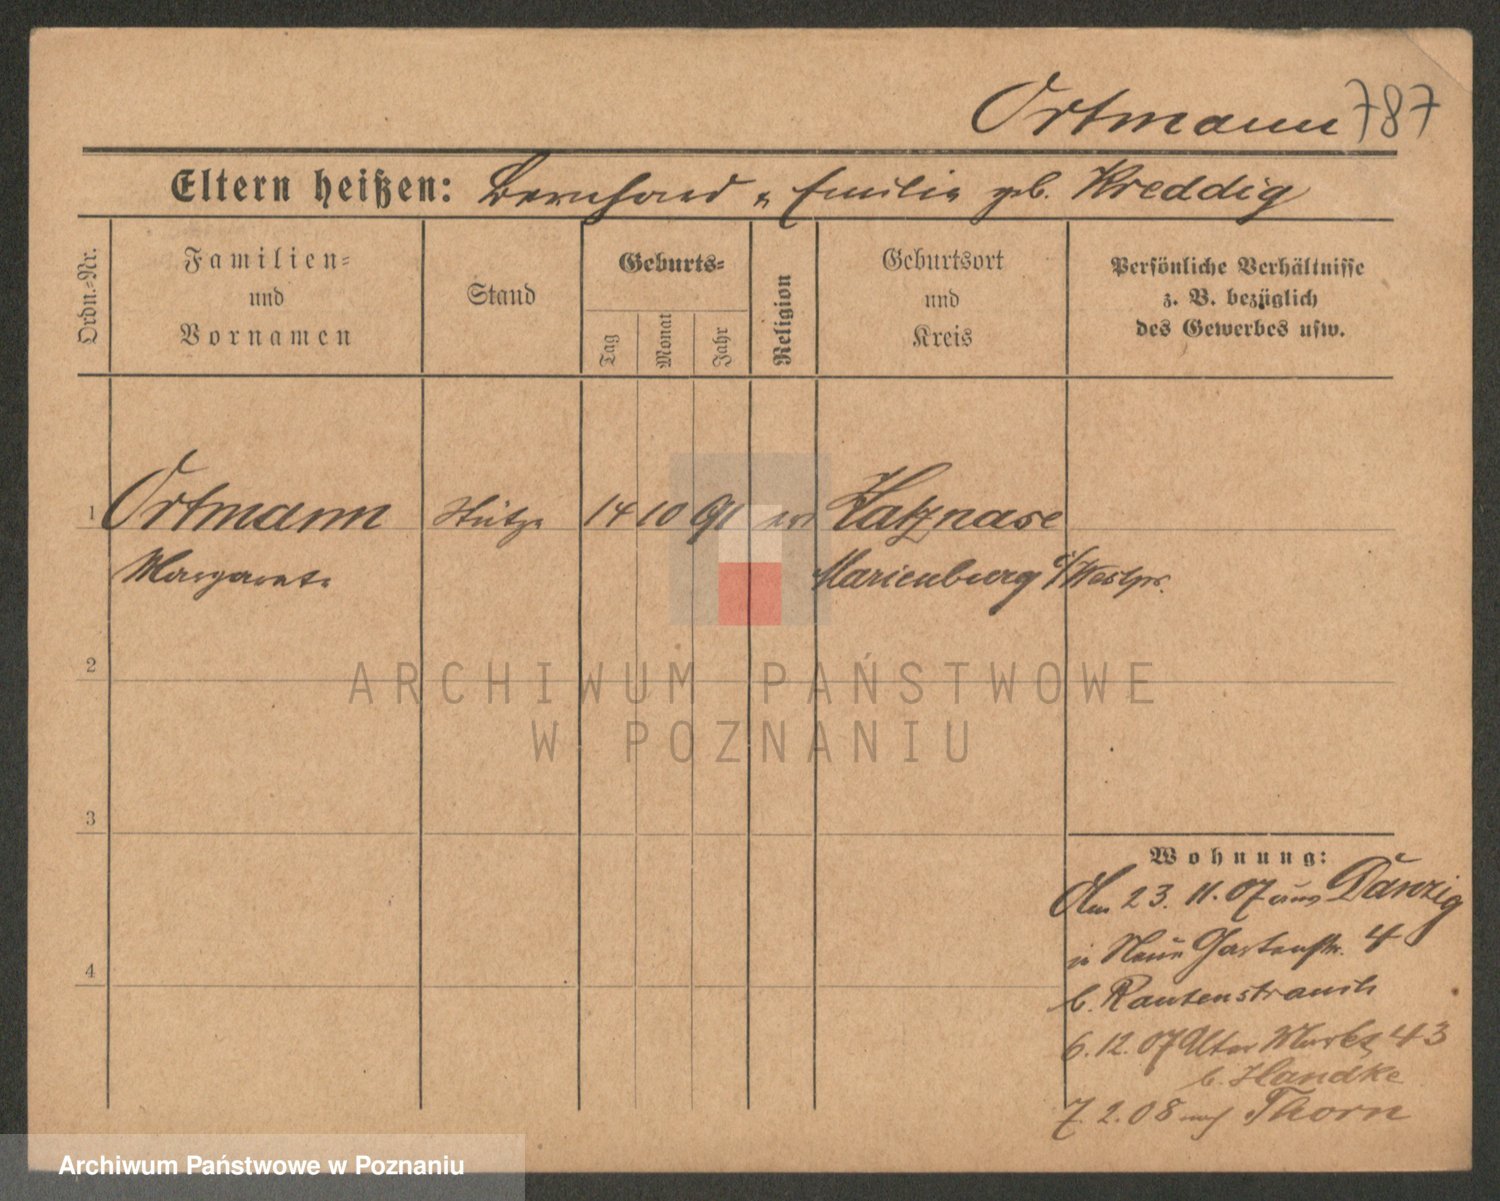 Ortmann 787
Eltern heißen: Bernhard u Emilie geb. Kreddig
Ordn.-Nr.
Familien-
und
Vornamen
Stand
Geburts-
Tag
Monat
Jahr
Religion
Geburtsort
und
Kreis
Persönliche Verhältnisse
z. B. bezüglich
des Gewerbes usw.
1 Ortmann Stütze 14 10 91 ev Katznase
Margarete Marienburg i/Westpr.
2
3
4
Wohnung:
Am 23. 11. 07 aus Danzig
in Neue Gartenstr. 4
b. Rautenstrauch
6. 12. 07 Alter Markt 43
b. Handke
7. 2. 08 nach Thorn
ARCHIWUM PAŃSTWOWE
W POZNANIU
Archiwum Państwowe w Poznaniu